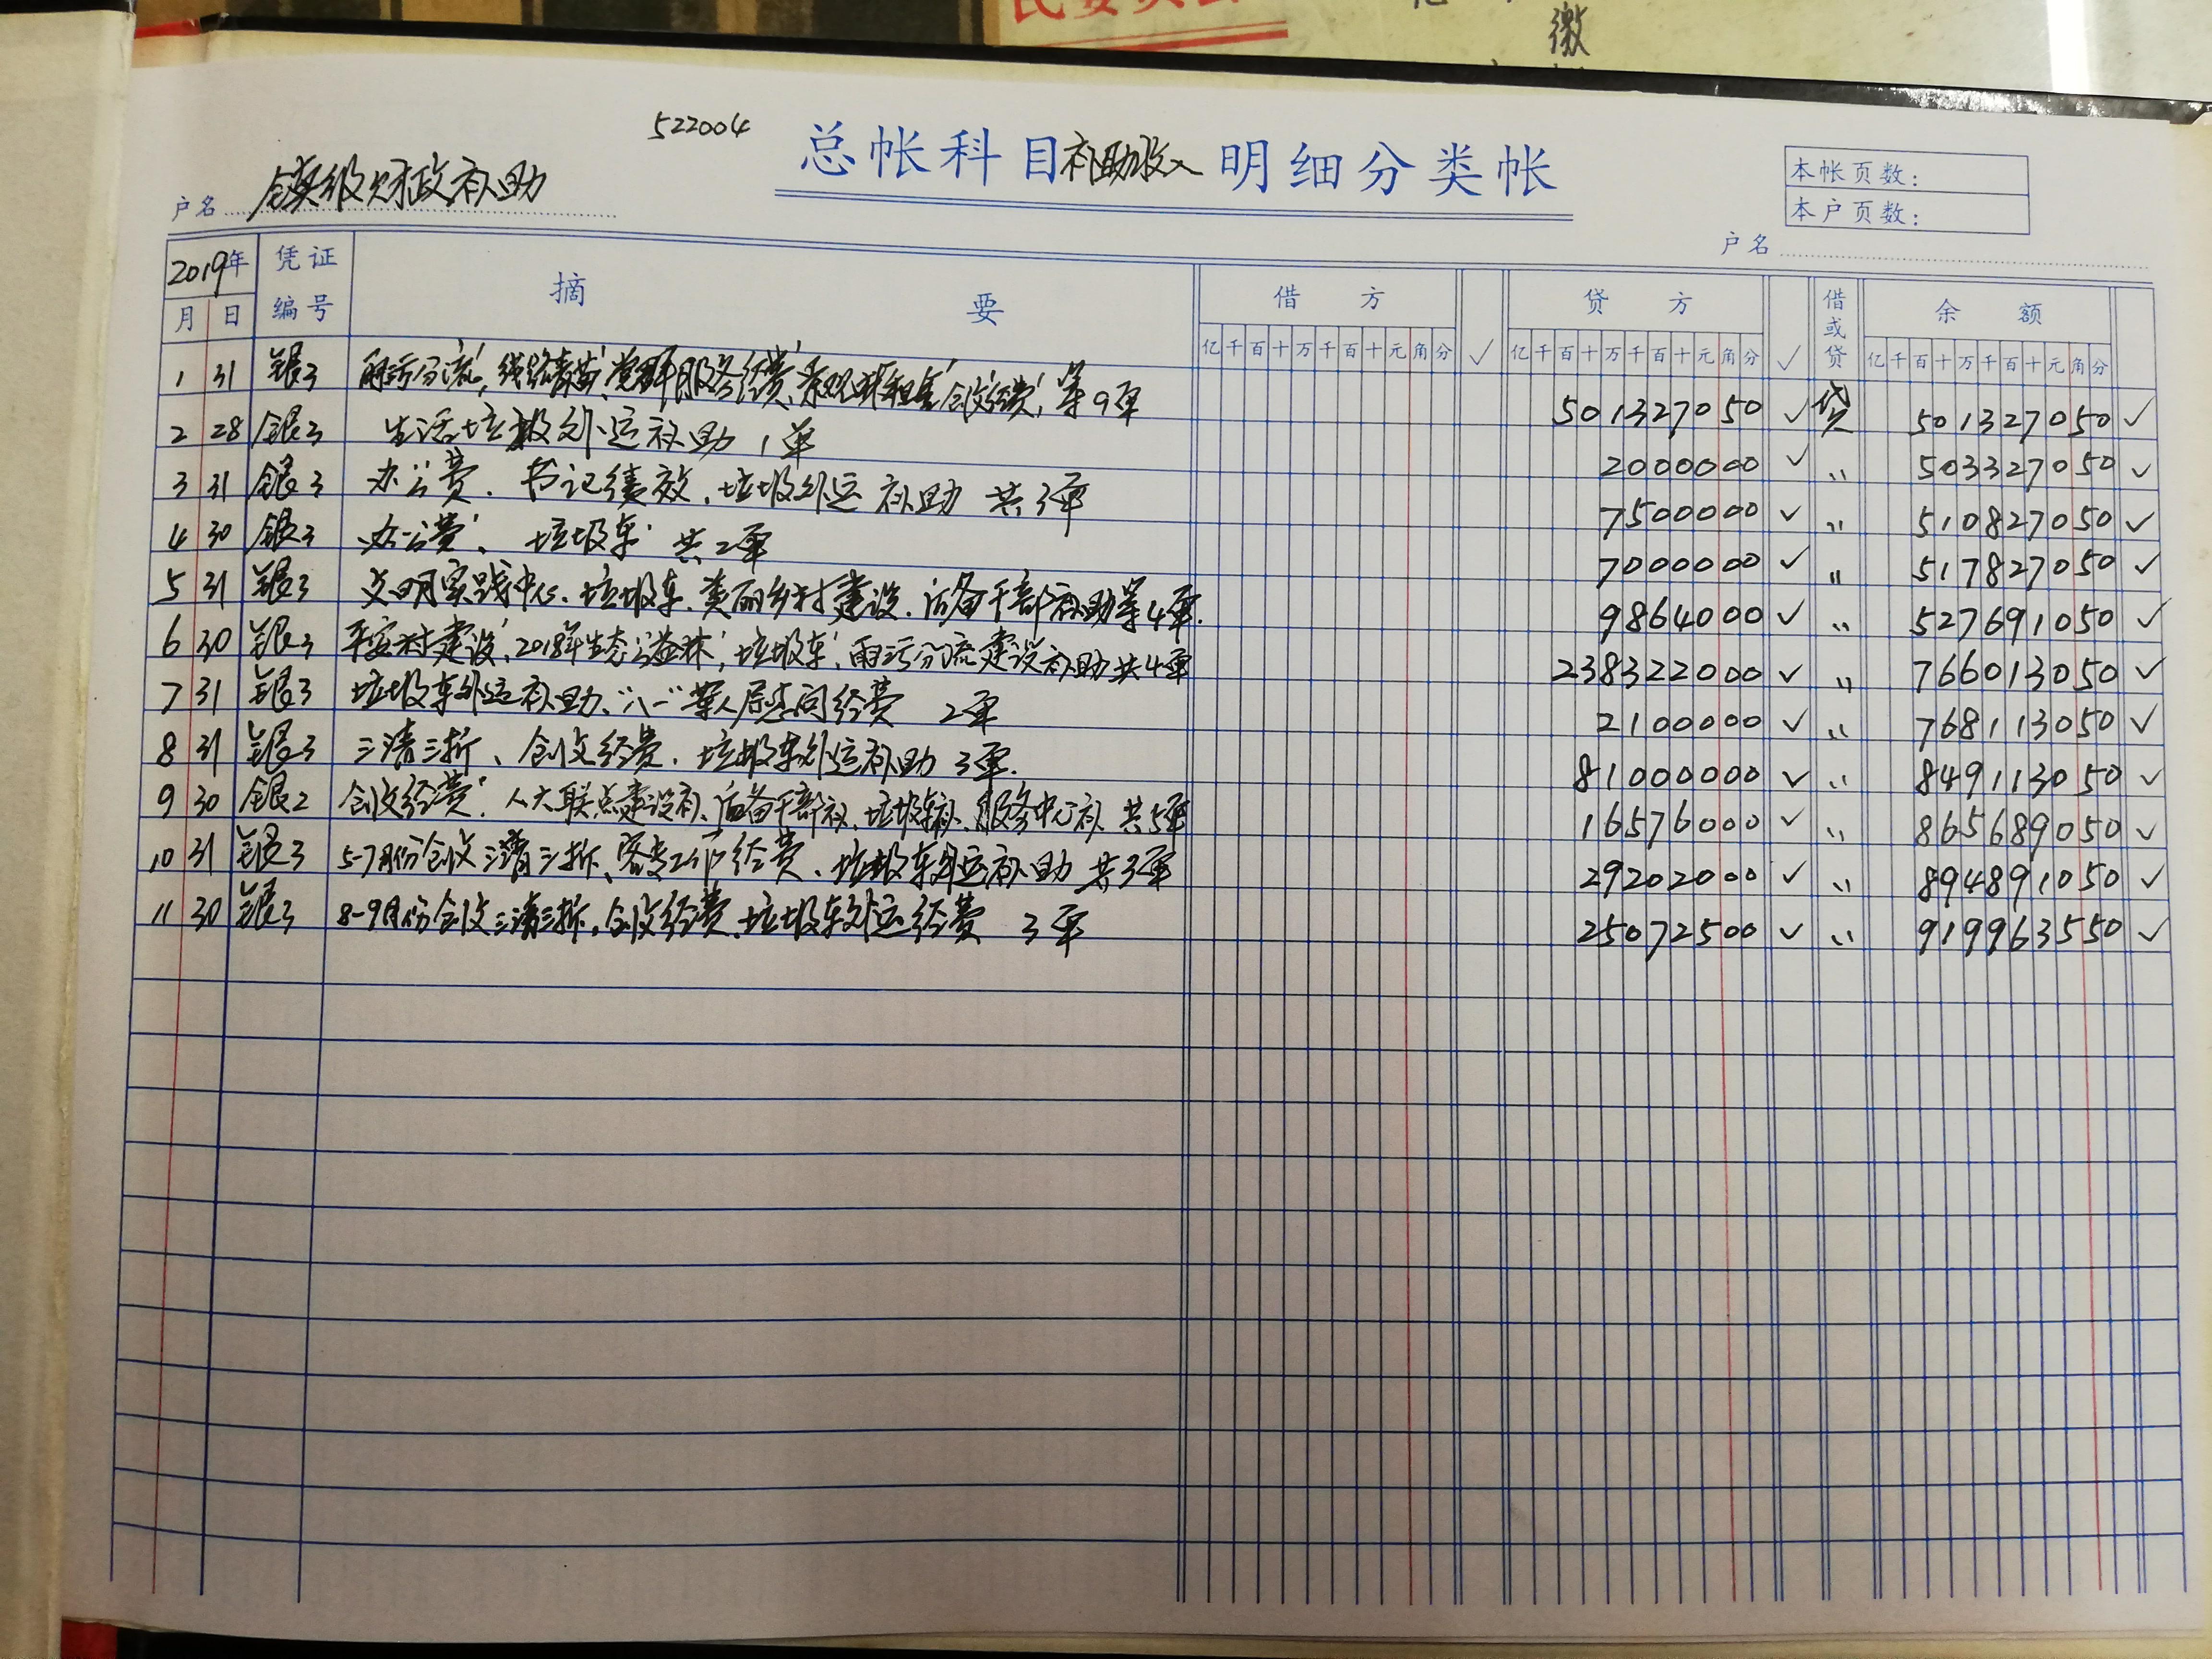 民委员会
缴
522004
总帐科目补助收入明细分类帐
户名 镇级财政补助
本帐页数:
本户页数:
户名
2019年 凭证编号 摘要 借方 ✓ 贷方 ✓ 借或贷 余额
月 日 亿千百十万千百十元角分 亿千百十万千百十元角分 亿千百十万千百十元角分
1 31 银3 雨污分流、线路青苗、党群服务经费、景观 租金、创收经费、等9单 501327050 ✓ 贷 501327050 ✓
2 28 银3 生活垃圾外运补助 1单 2000000 ✓ 〃 503327050 ✓
3 31 银3 办公费、书记绩效、垃圾外运补助 共3单 7500000 ✓ 〃 510827050 ✓
4 30 银3 办公费、垃圾车 共2单 7000000 ✓ 〃 517827050 ✓
5 31 银3 文明实践中心、垃圾车、美丽乡村建设、后备干部补助等4单. 9864000 ✓ 〃 527691050 ✓
6 30 银3 平安村建设、2018年生态公益林、垃圾车、雨污分流建设补助共4单 238322000 ✓ 〃 766013050 ✓
7 31 银3 垃圾车外运补助、"八一"军人 慰问经费 2单 2100000 ✓ 〃 768113050 ✓
8 31 银3 三清三拆、创文经费、垃圾车外运补助 3单. 81000000 ✓ 〃 849113050 ✓
9 30 银2 创文经费、人大联点建设补、后备干部补、垃圾车补、服务中心补 共5单 16576000 ✓ 〃 865689050 ✓
10 31 银3 5-7月份创文三清三拆、客专工作经费、垃圾车外运补助 共3单 29202000 ✓ 〃 894891050 ✓
11 30 银3 8-9月份创文三清三拆、创文经费、垃圾车外运经费 3单 25072500 ✓ 〃 919963550 ✓